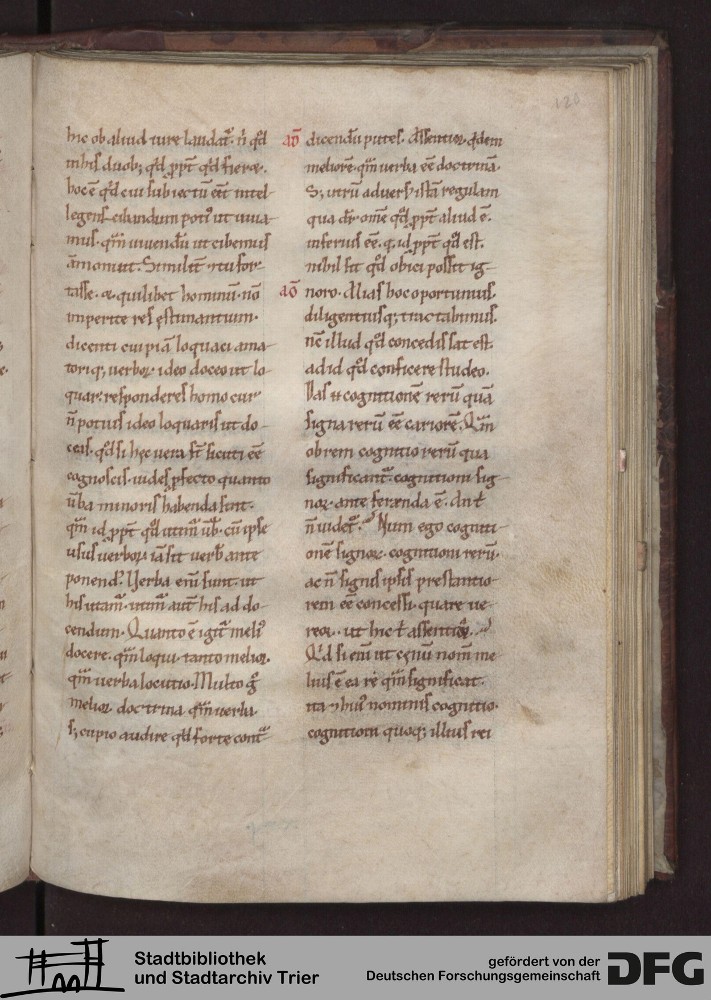 120
hic ob aliud iure laudat̄. n̄ qđ
in his duob; qđ ꝓpt̄ qđ fieret.
hoc ē qđ cui subiectū eēt intel-
legens. cibandum poti᷒ ut uiua-
mus. qm̄ uiuendū ut cibemus
āmonuit. Similit̄
tasse. quilibet hominū. nō
imperite res ęstimantium.
dicenti cuipiā loquaci ama-
toriq; verboꝝ. ideo doceo ut lo-
quar. responderes homo cur
n̄ potius ideo loquaris ut do-
ceas. qđ si hęc uera st̄ sicuti eē
cognoscis. uides ꝓfecto quanto
ūba minoris habenda sint.
qm̄ id ꝓpt̄ qđ utim̄ ūb. cū ipse
usus uerboꝝ iā sit uerb ante
ponend᷒. Verba eni sunt. ut
his utam̄. utim̄ aut̄ his ad do-
cendum. Quanto ē igit̄ meli᷒
docere. qm̄ loqui. tanto melior.
qm̄ uerba locutio. Multo g̊
melior doctrina qm̄ uerba.
s; cupio audire qđ forte cont̄
aō dicendū putes. Assentior qdem
meliorē qm̄ uerba eē doctrinā.
S; utrū aduers᷒ istā regulam
qua dr̄ om̄e qđ ꝓpt̄ aliud ē.
inferius eē. q̄ id ꝓpt̄ qđ est.
nihil sit qđ obici possit ig-
aō noro. Alias hoc oportunius.
diligentiusq; tractabimus.
nc̄ illud qđ concedis sat est.
ad id qđ conficere studeo.
Das n̄ cognitionē rerū quā
signa rerū eē cariorē. Qm̄
ob rem cognitio rerū qua
significant̄. cognitioni sig-
noꝝ ante ferenda ē. An t̄
n̄ uidet̄. Num ego cogniti-
onē signoꝝ. cognitioni rerū.
ac n̄ signis ipsis prestantio-
rem eē concessi. quare ue-
reor. ut hic t̄ assentiar.
Qđ si eni ut cęnū nom̄ me-
lius ē ea re qm̄ significat.
ita hui᷒ nominis cognitio.
cognitioni quoq; illius rei
Stadtbibliothek
und Stadtarchiv Trier
gefördert von der
Deutschen Forschungsgemeinschaft
DFG